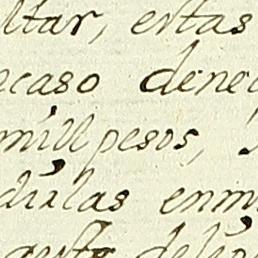 ltar, estas
ecaso dene
mill pesos,
dulas enm